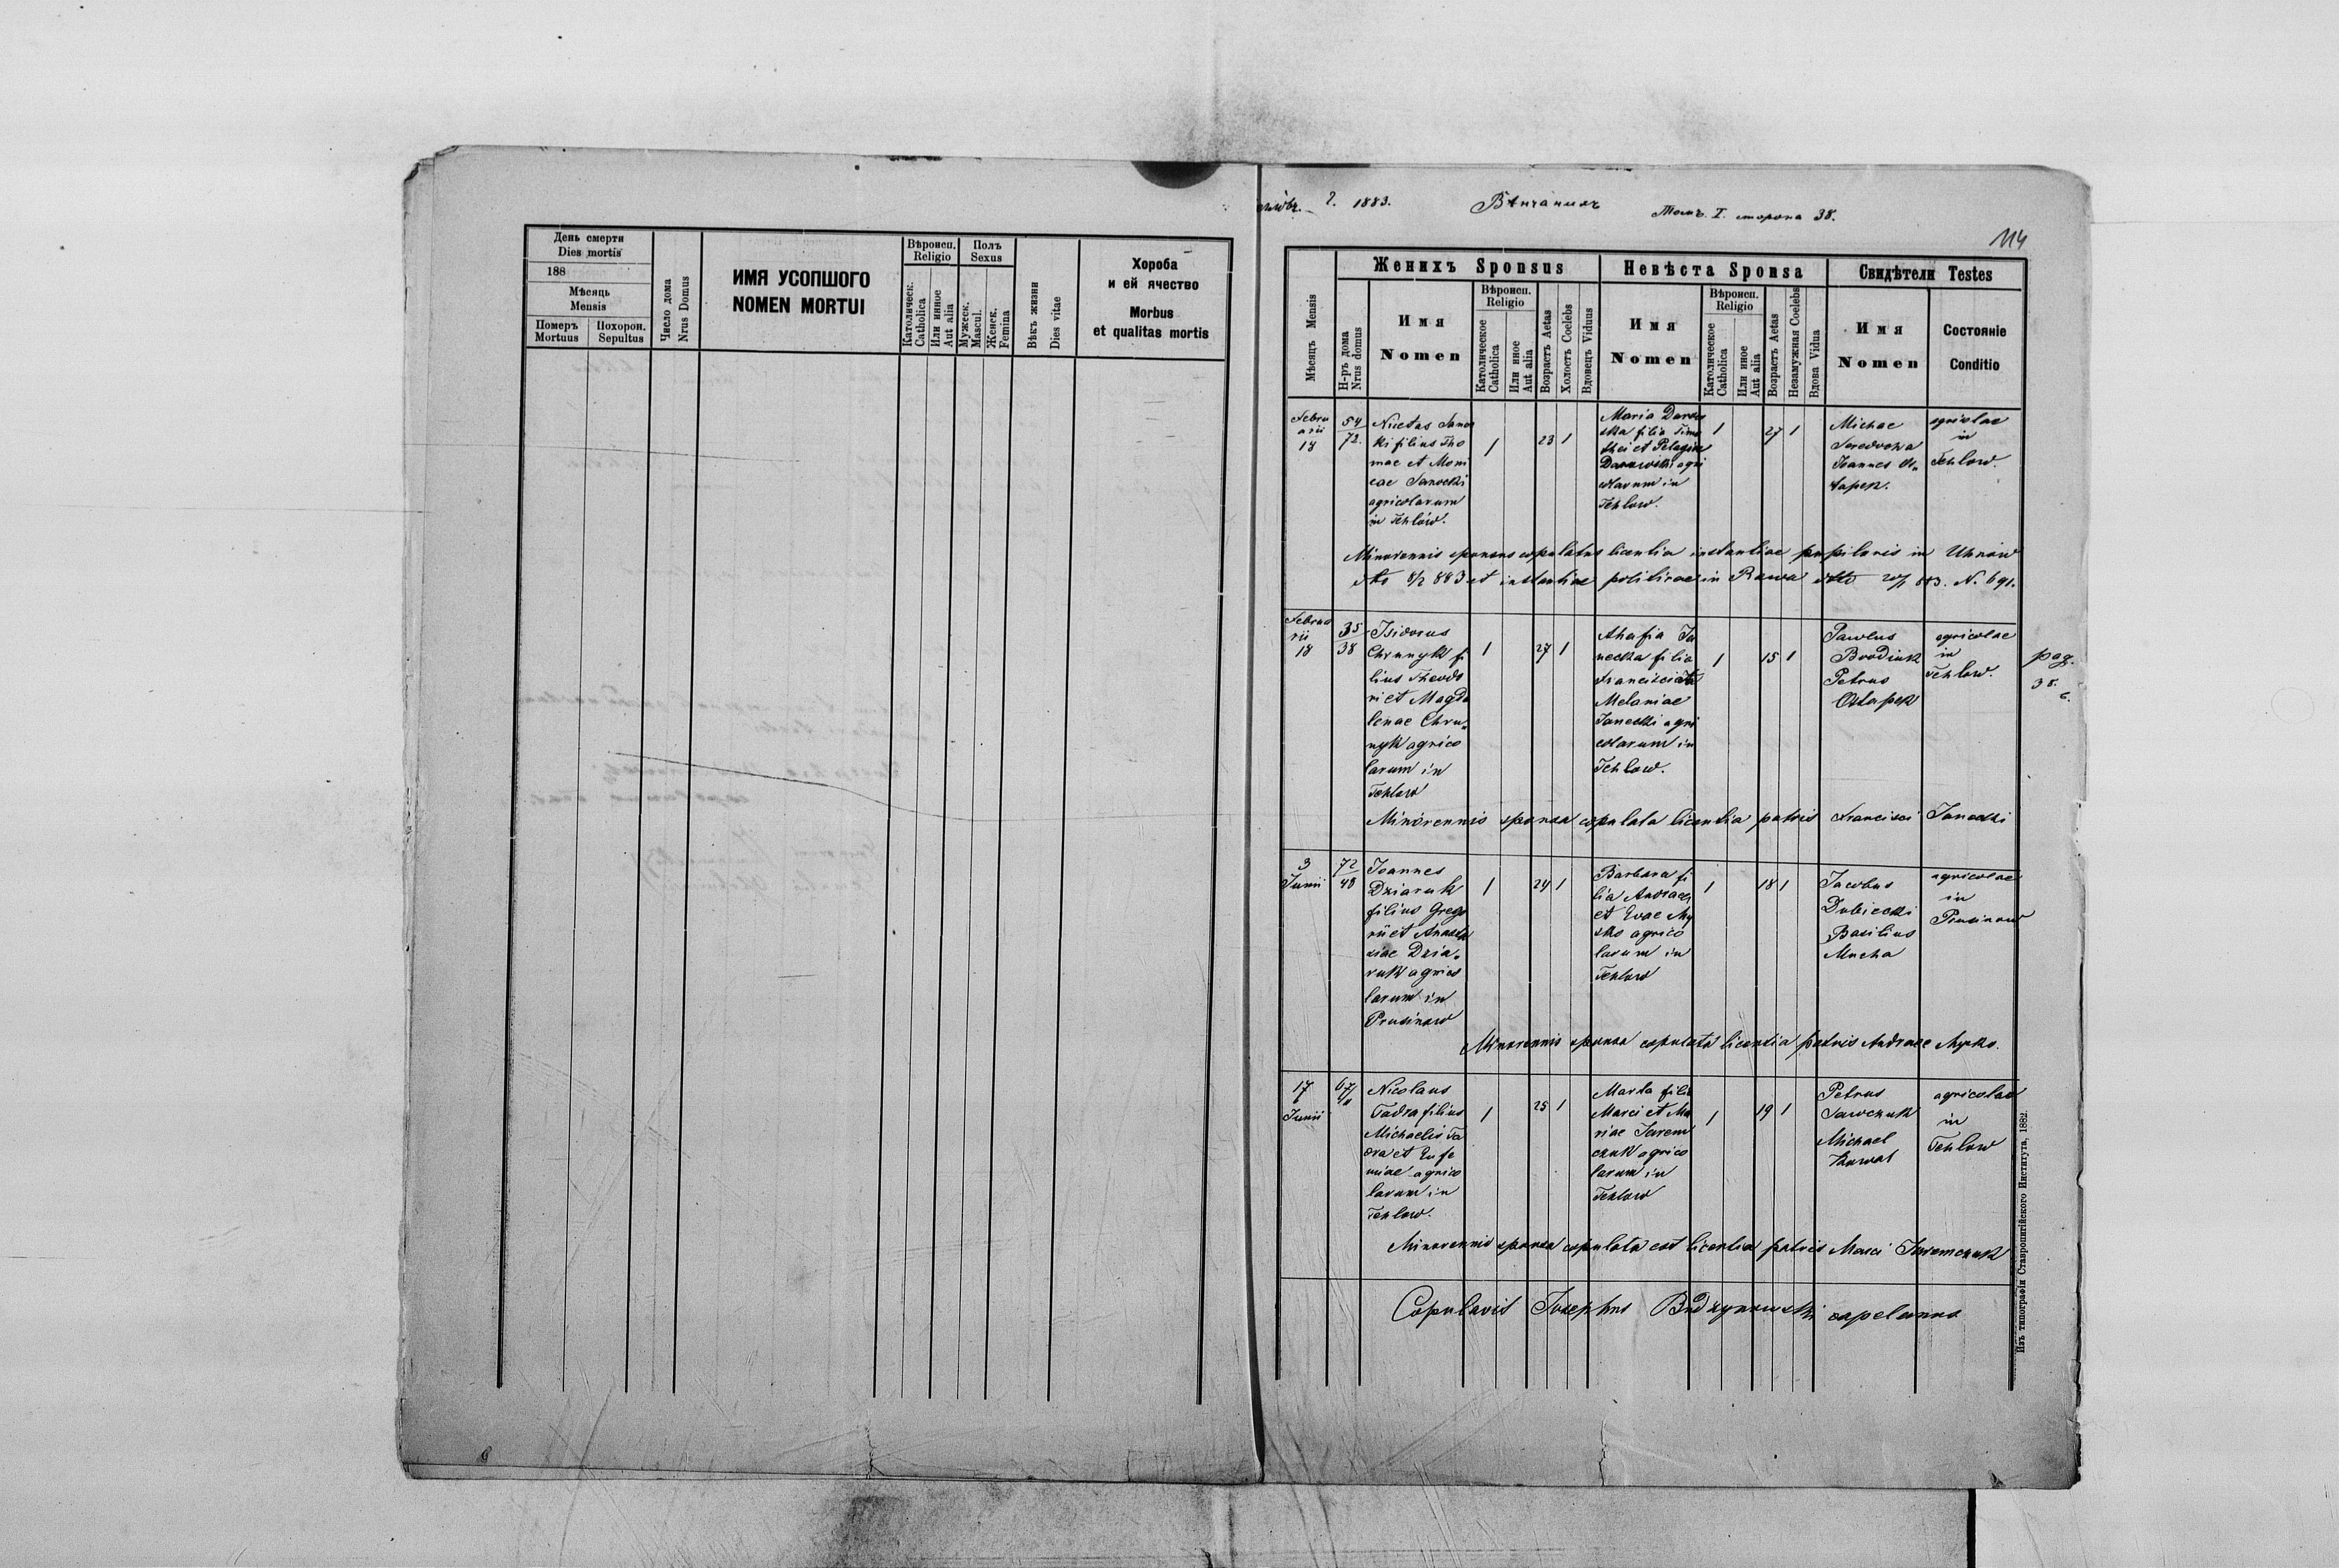 День смерти
Dies mortis
188
Мѣсяць
Mensis
Померъ
Mortuus
Похорон.
Sepultus
Число дома
Nrus Domus
ИМЯ УСОПШОГО
NOMEN MORTUI
Вѣроисп.
Religio
Католическ.
Catholica
Или инное
Aut alia
Полъ
Sexus
Мужеск.
Mascul.
Женск.
Femina
Вѣкъ жизни
Dies vitae
Хороба
и ей ячество
Morbus
et qualitas mortis
г. 1883.
Вѣнчаныхъ
Томъ. I. сторона 38.
114
Мѣсяцъ Mensis
Женихъ Sponsus
Н-ръ дома
Nrus domus
Имя
Nomen
Вѣроисп.
Religio
Католическое
Catholica
Или инное
Aut alia
Возрастъ Aetas
Холостъ Coelebs
Вдовецъ Viduus
Невѣста Sponsa
Имя
Nomen
Вѣроисп.
Religio
Католическое
Catholica
Или инное
Aut alia
Возрастъ Aetas
Незамужная Coelebs
Вдова Vidua
Свидѣтели Testes
Имя
Nomen
Состояніе
Conditio
Febru
arii
18
54
72.
Nicetas Janec
ki filius Tho
mae et Moni
cae Janecki
agricolarum
in Tehlów.
1
23
1
Maria Darow
ska filia Timo
thei et Pelagiae
Darowski agri
colarum in
Tehlow.
1
27
1
Michae
Joannes Os
tapek.
agricolae
in
Tehlow.
Minorennis sponsus copulatus licentia instantiae pupilaris in Uhnow
dto 8/2 883 et instantiae politicae in Rawa dtto 20/1 883. N. 691.
Februa
rii
18
35
38
Isidorus
Chrunyk fi
lius Theodo
ri et Magda
lenae Chru
nyk agrico
larum in
Tehlow
1
27
1
Ahafia Ja
necka filia
Francisci et
Melaniae
Janecki agri
colarum in
Tehlow.
1
15
1
Pawlus
Brodiuk
Petrus
Ostapek
agricolae
in
Tehlow.
pag.
38.
6.
Minorennis sponsa copulata licentia patris Francisci Janecki
3
Junii
72
48
Joannes
Dziaruk
filius Grego
rii et Anasta
siae Dzia
ruk agrico
larum in
Prusinow
1
24
1
Barbara fi
lia Andreae
et Evae My
sko agrico
larum in
Tehlow
1
18
1
Jacobus
Dubiecki
Basilius
Mucha
agricolae
in
Prusinow
Minorennis sponsa copulata licentia patris Andreae Mysko.
17
Junii
67/11
Nicolaus
Fadra filius
Michaelis Fa
dra et Eufe
miae agrico
larum in
Tehlow.
1
25
1
Marta filia
Marci et Ma
riae Jarem
czuk agrico
larum in
Tehlow
1
19
1
Petrus
Sawczuk
Michael
Kowal
agricolae
in
Tehlow
Minorennis sponsa copulata est licentia patris Marci Jaremczuk
Copulavit Josephus Budzynowski capelanus
Изъ типографіи Ставропигійского Института, 1882.